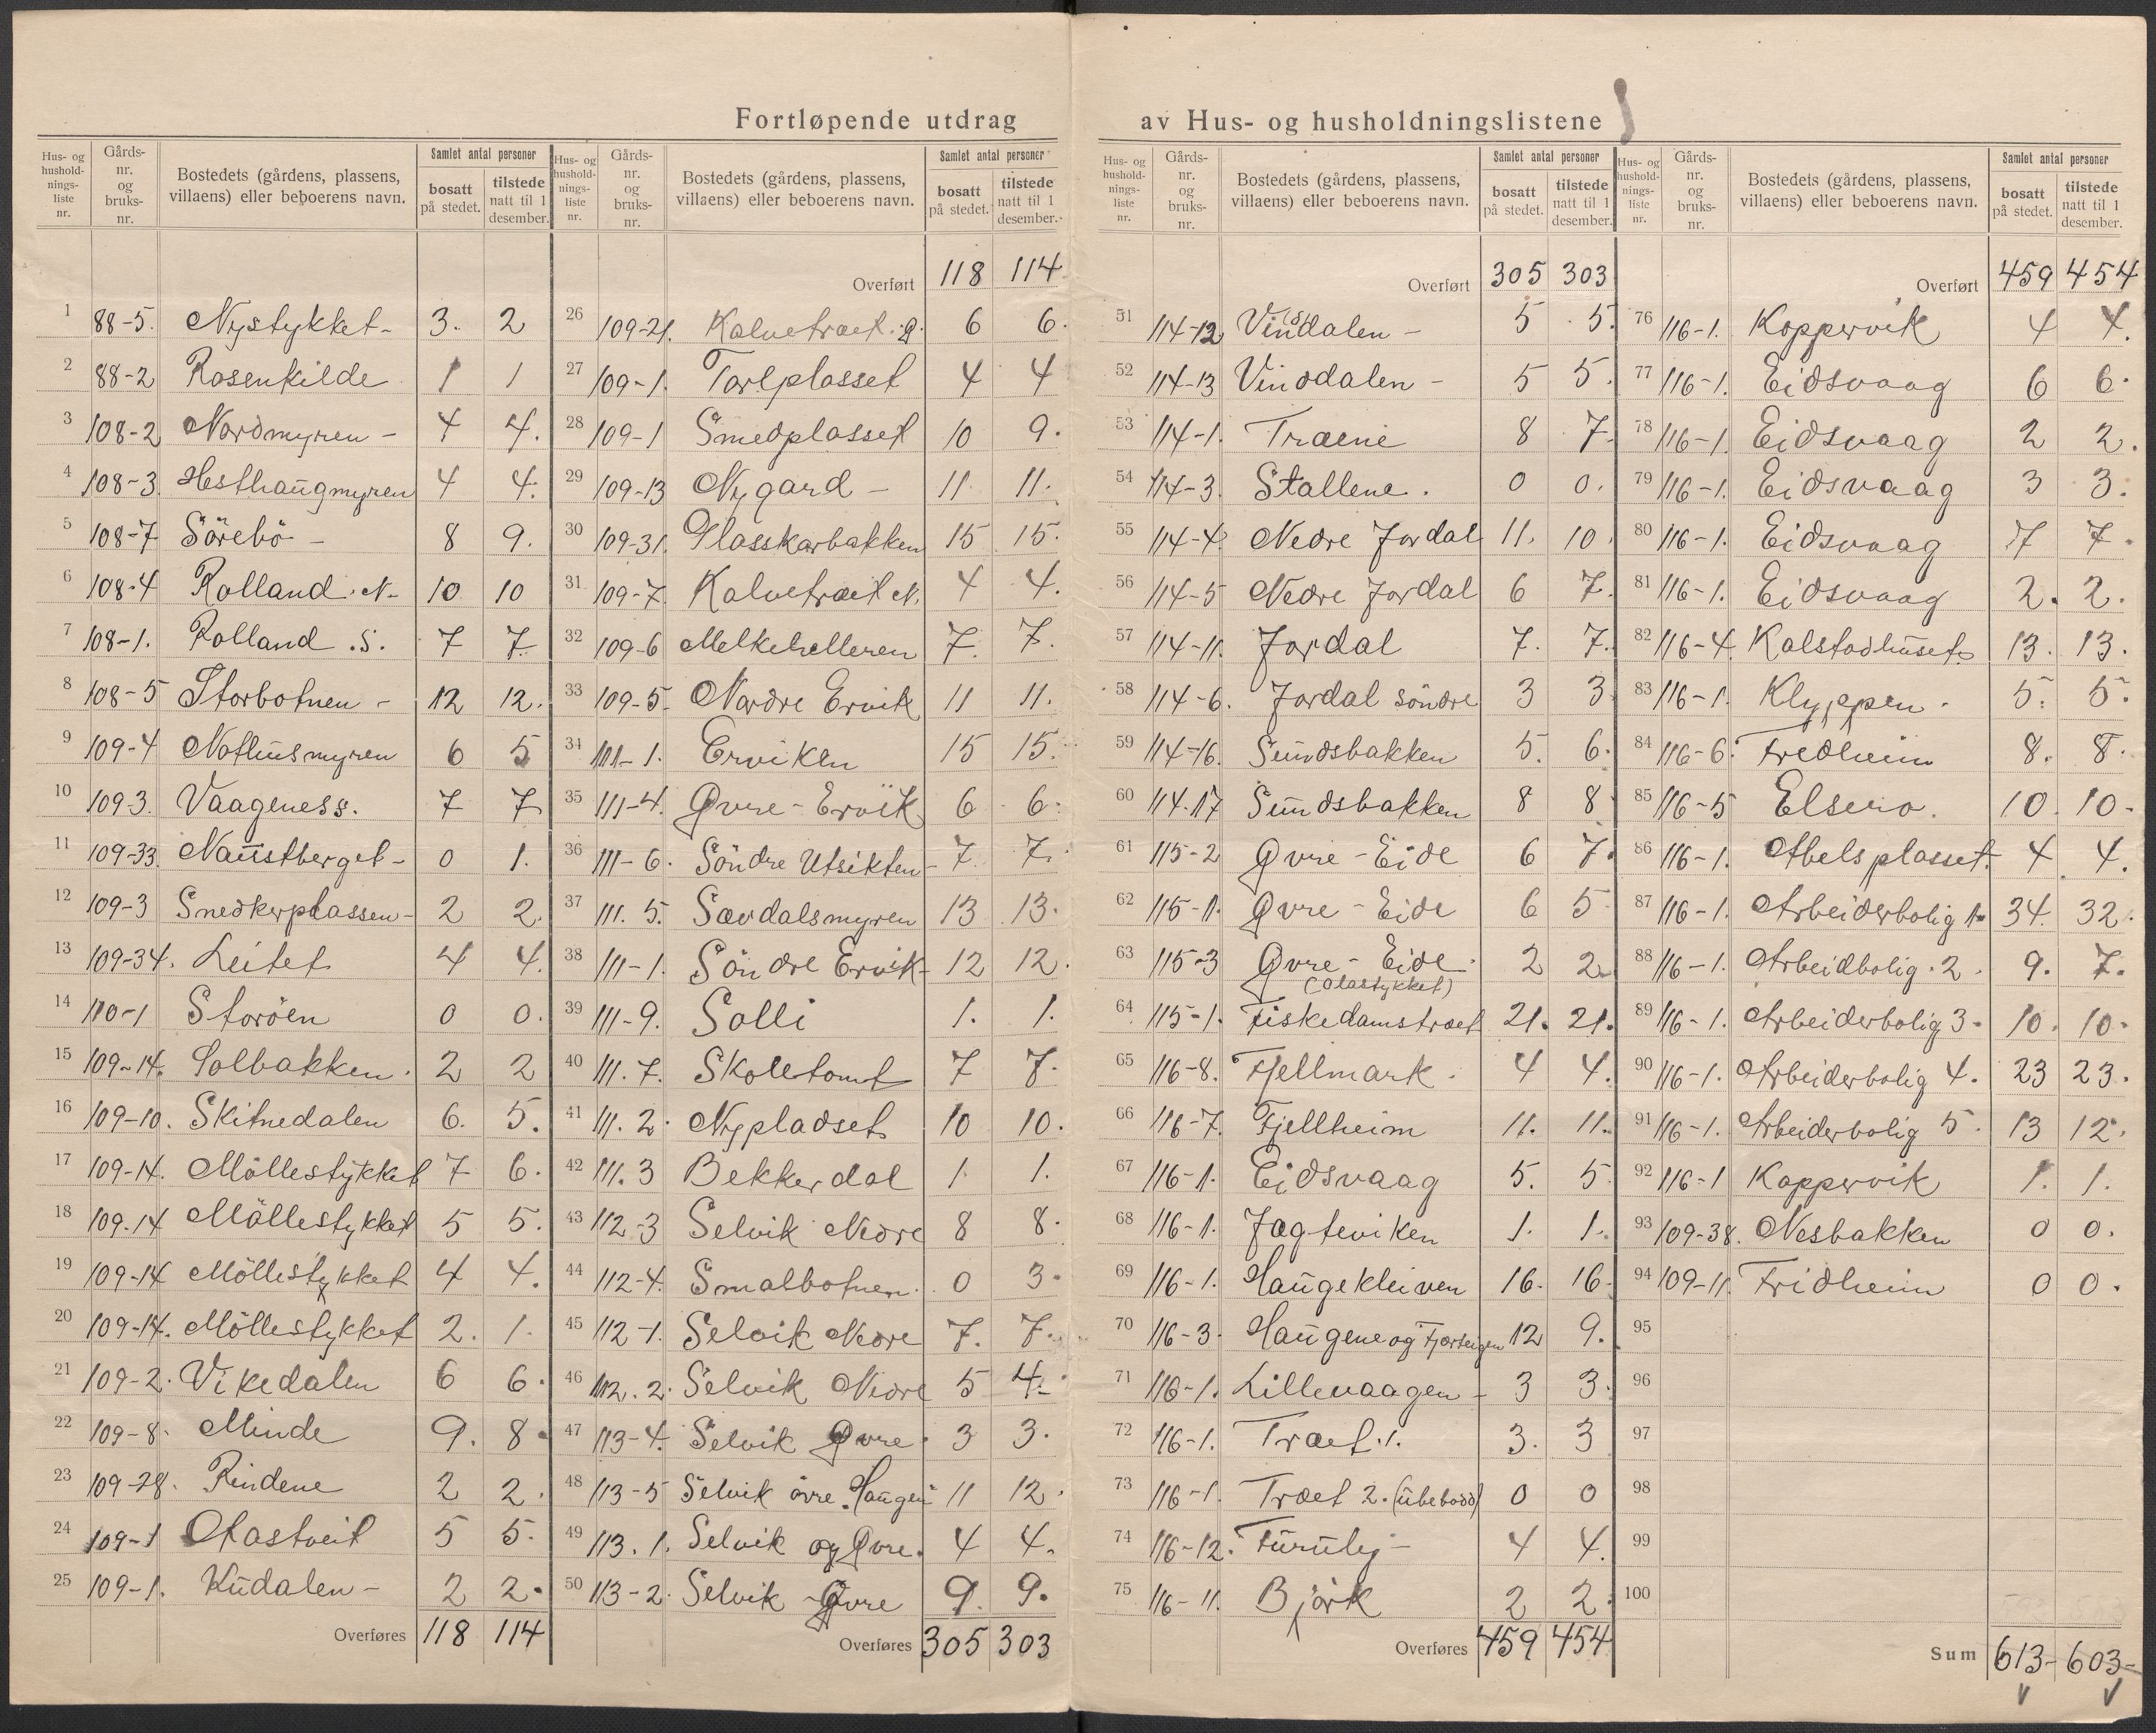 Fortløpende utdrag av Hus- og husholdningslistene
Hus- og husholdningsliste nr. | Gårds-nr. og bruks-nr. | Bostedets (gårdens, plassens, villaens) eller beboerens navn. | Samlet antal personer | bosatt på stedet. | tilstede natt til 1 desember.
1 88-5. Nystykket- 3. 2
2 88-2 Rosenkilde 1 1
3 108-2 Nordmyren - 4 4.
4 108-3. Hesthaugmyren 4 4.
5 108-7 Sörebö - 8 9.
6 108-4 Rolland. N- 10 10
7 108-1. Rolland. S. 7 7
8 108-5 Storbotnen - 12 12.
9 109-4 Nothusmyren 6 5
10 109-3. Vaageness. 7 7
11 109-33. Naustberget- 0 1.
12 109-3 Snedkerplassen- 2 2.
13 109-34. Leitet 4 4.
14 110-1 Storöen 0 0.
15 109-14. Solbakken. 2 2
16 109-10. Skitnedalen 6. 5.
17 109-14. Möllestykket 7 6.
18 109-14 Möllestykket 5 5.
19 109-14 Möllestykket 4 4.
20 109-14. Möllestykket 2. 1.
21 109-2. Vikedalen 6 6.
22 109-8. Minde 9. 8.
23 109-28. Rindene 2 2.
24 109-1 Hastveit 5 5.
25 109-1. Kudalen - 2 2.
Overføres 118 114
Overført 118 114
26 109-21. Kalvetræet. 6 6.
27 109-1. Torlplasset 4 4
28 109-1 Smedplasset 10 9.
29 109-13 Nygard - 11 11.
30 109-31. Glasskarbakken 15 15.
31 109-7. Kalvetræet N. 4 4.
32 109-6 Melkehelleren 7. 7.
33 109-5- Nordre Ervik 11 11.
34 111-1. Erviken 15 15.
35 111-4. Øvre-Ervik 6 6.
36 111-6. Söndre Utsikten- 7. 7.
37 111.5. Sævdalsmyren 13 13.
38 111-1. Söndre Ervik- 12 12.
39 111-9. Solli 1. 1.
40 111.7. Skoletomt 7 7.
41 111.2. Nypladset 10 10.
42 111.3 Bekkerdal 1. 1.
43 112-3 Selvik Nedre 8 8.
44 112-4. Smalbotnen. 0 3.
45 112-1. Selvik Nedre 7. 7.
46 112.2. Selvik Nedre 5 4.
47 113-4. Selvik Øvre. 3 3.
48 113-5 Selvik övre. Haugen 11 12.
49 113.1. Selvik og Øvre. 4 4.
50 113-2. Selvik-Øvre 9. 9.
Overføres 305 303
Overført 305 303
51 114-12 Vindalen - 5 5.
52 114-13 Vindalen - 5 5.
53 114-1. Træene 8 7.
54 114-3. Stallene. 0 0.
55 114-4. Nedre Jordal 11. 10
56 114-5 Nedre Jordal 6 7.
57 114-11. Jordal 7. 7.
58 114-6. Jordal söndre 3 3
59 114-16. Sundsbakken 5. 6.
60 114.17 Sundsbakken 8 8
61 115-2 Øvre-Eide 6 7.
62 115-1. Øvre-Eide 6 5
63 115-3 Øvre-Eide. 2 2.
(Olastykket)
64 115-1. Fiskedamstræet 21. 21.
65 116-8. Fjellmark. 4 4.
66 116-7. Fjellheim 11. 11.
67 116-1. Eidsvaag 5. 5
68 116-1. Jagteviken 1. 1.
69 116-1. Haugekleiven 16. 16.
70 116-3. Haugene og 12 9.
71 116-1. Lillevaagen - 3 3.
72 116-1. Træet. 1. 3. 3
73 116-1. Træet 2. (ubebodd) 0 0
74 116-12. Furuly - 4 4.
75 116-11. Björk 2 2.
Overføres 459 454
Overført 459 454
76 116-1. Koppervik 4 4.
77 116-1. Eidsvaag 6 6.
78 116-1. Eidsvaag 2 2.
79 116-1. Eidsvaag 3 3.
80 116-1. Eidsvaag 7 7.
81 116-1. Eidsvaag 2. 2.
82 116-4. Kalstadhuset. 13. 13.
83 116-1. Klyppen. 5. 5.
84 116-6. Fredheim 8. 8.
85 116-5 Elsero. 10. 10.
86 116-1. Abelsplasset. 4 4.
87 116-1. Arbeiderbolig 1. 34. 32.
88 116-1. Arbeidbolig. 2. 9. 7.
89 116-1. Arbeiderbolig 3. 10. 10.
90 116-1. Arbeiderbolig 4. 23 23.
91 116-1. Arbeiderbolig 5. 13 12.
92 116-1 Koppervik 1. 1.
93 109-38. Nesbakken 0 0.
94 109-11. Fridheim 0 0.
95
96
97
98
99
100
Sum 613- 603-